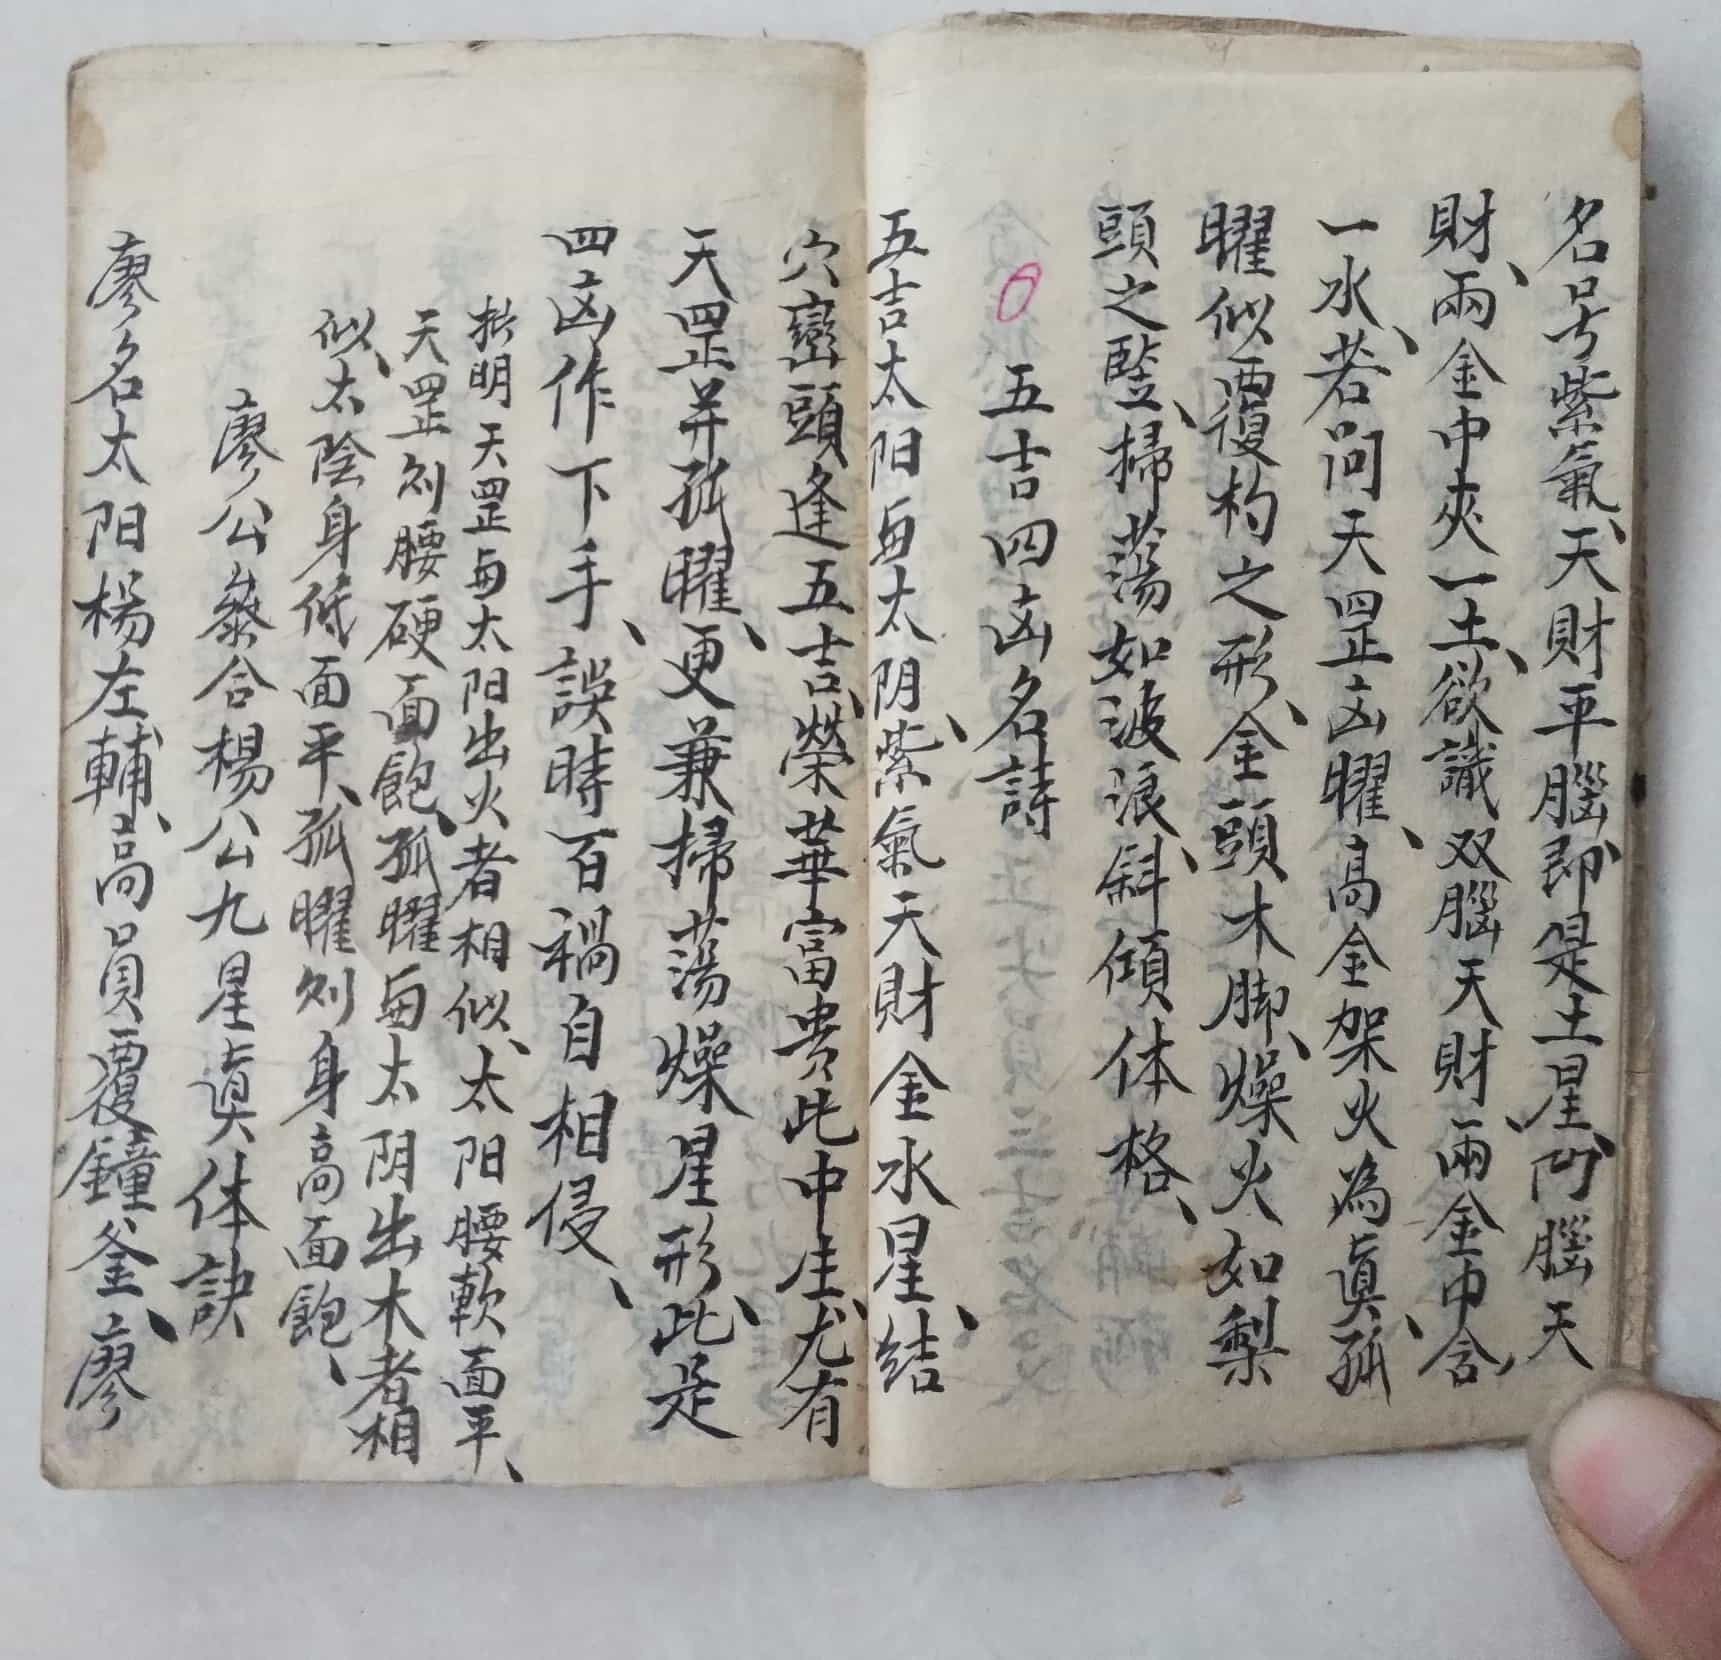 名号紫氣、天財平腦即是土星、凹腦天
財、兩金中夾一土、欲識双腦天財兩金中含
一水、若问天罡凶曜、高金架火為真、孤
曜似覆杓之形、金頭木脚、燥火如梨
頭之竪、掃蕩如波浪、斜傾体格、
五吉四凶名詩
五吉太阳与太阴、紫氣天財金水星、结
穴巒頭逢五吉、榮華富貴此中庄尤有
天罡并孤曜、更兼掃蕩燥星形、此是
四凶作下手、誤時百禍自相侵、
批明天罡与太阳出火者相似、太阳腰軟面平、
天罡则腰硬面飽、孤曜与太阴出木者相
似、太陰身低面平、孤曜则身高面飽、
廖公叅合楊公九星真体訣
廖名太阳楊左輔、高員覆鐘釜、廖